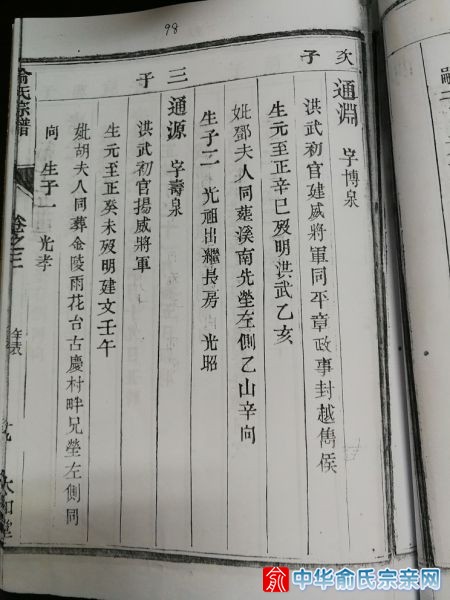 98
次子
通淵 字博泉
洪武初官建威將軍同平章政事封越雋侯
生元至正辛巳歿明洪武乙亥
妣鄧夫人同葬溪南先塋左側乙山辛向
生子二 光祖出繼長房 光昭
三子
通源 字壽泉
洪武初官揚威將軍
生元至正癸未歿明建文壬午
妣胡夫人同葬金陵雨花台古慶村畔兄塋左側同
向 生子一 光孝
俞氏宗譜
卷之三
年表
中华俞氏宗亲网